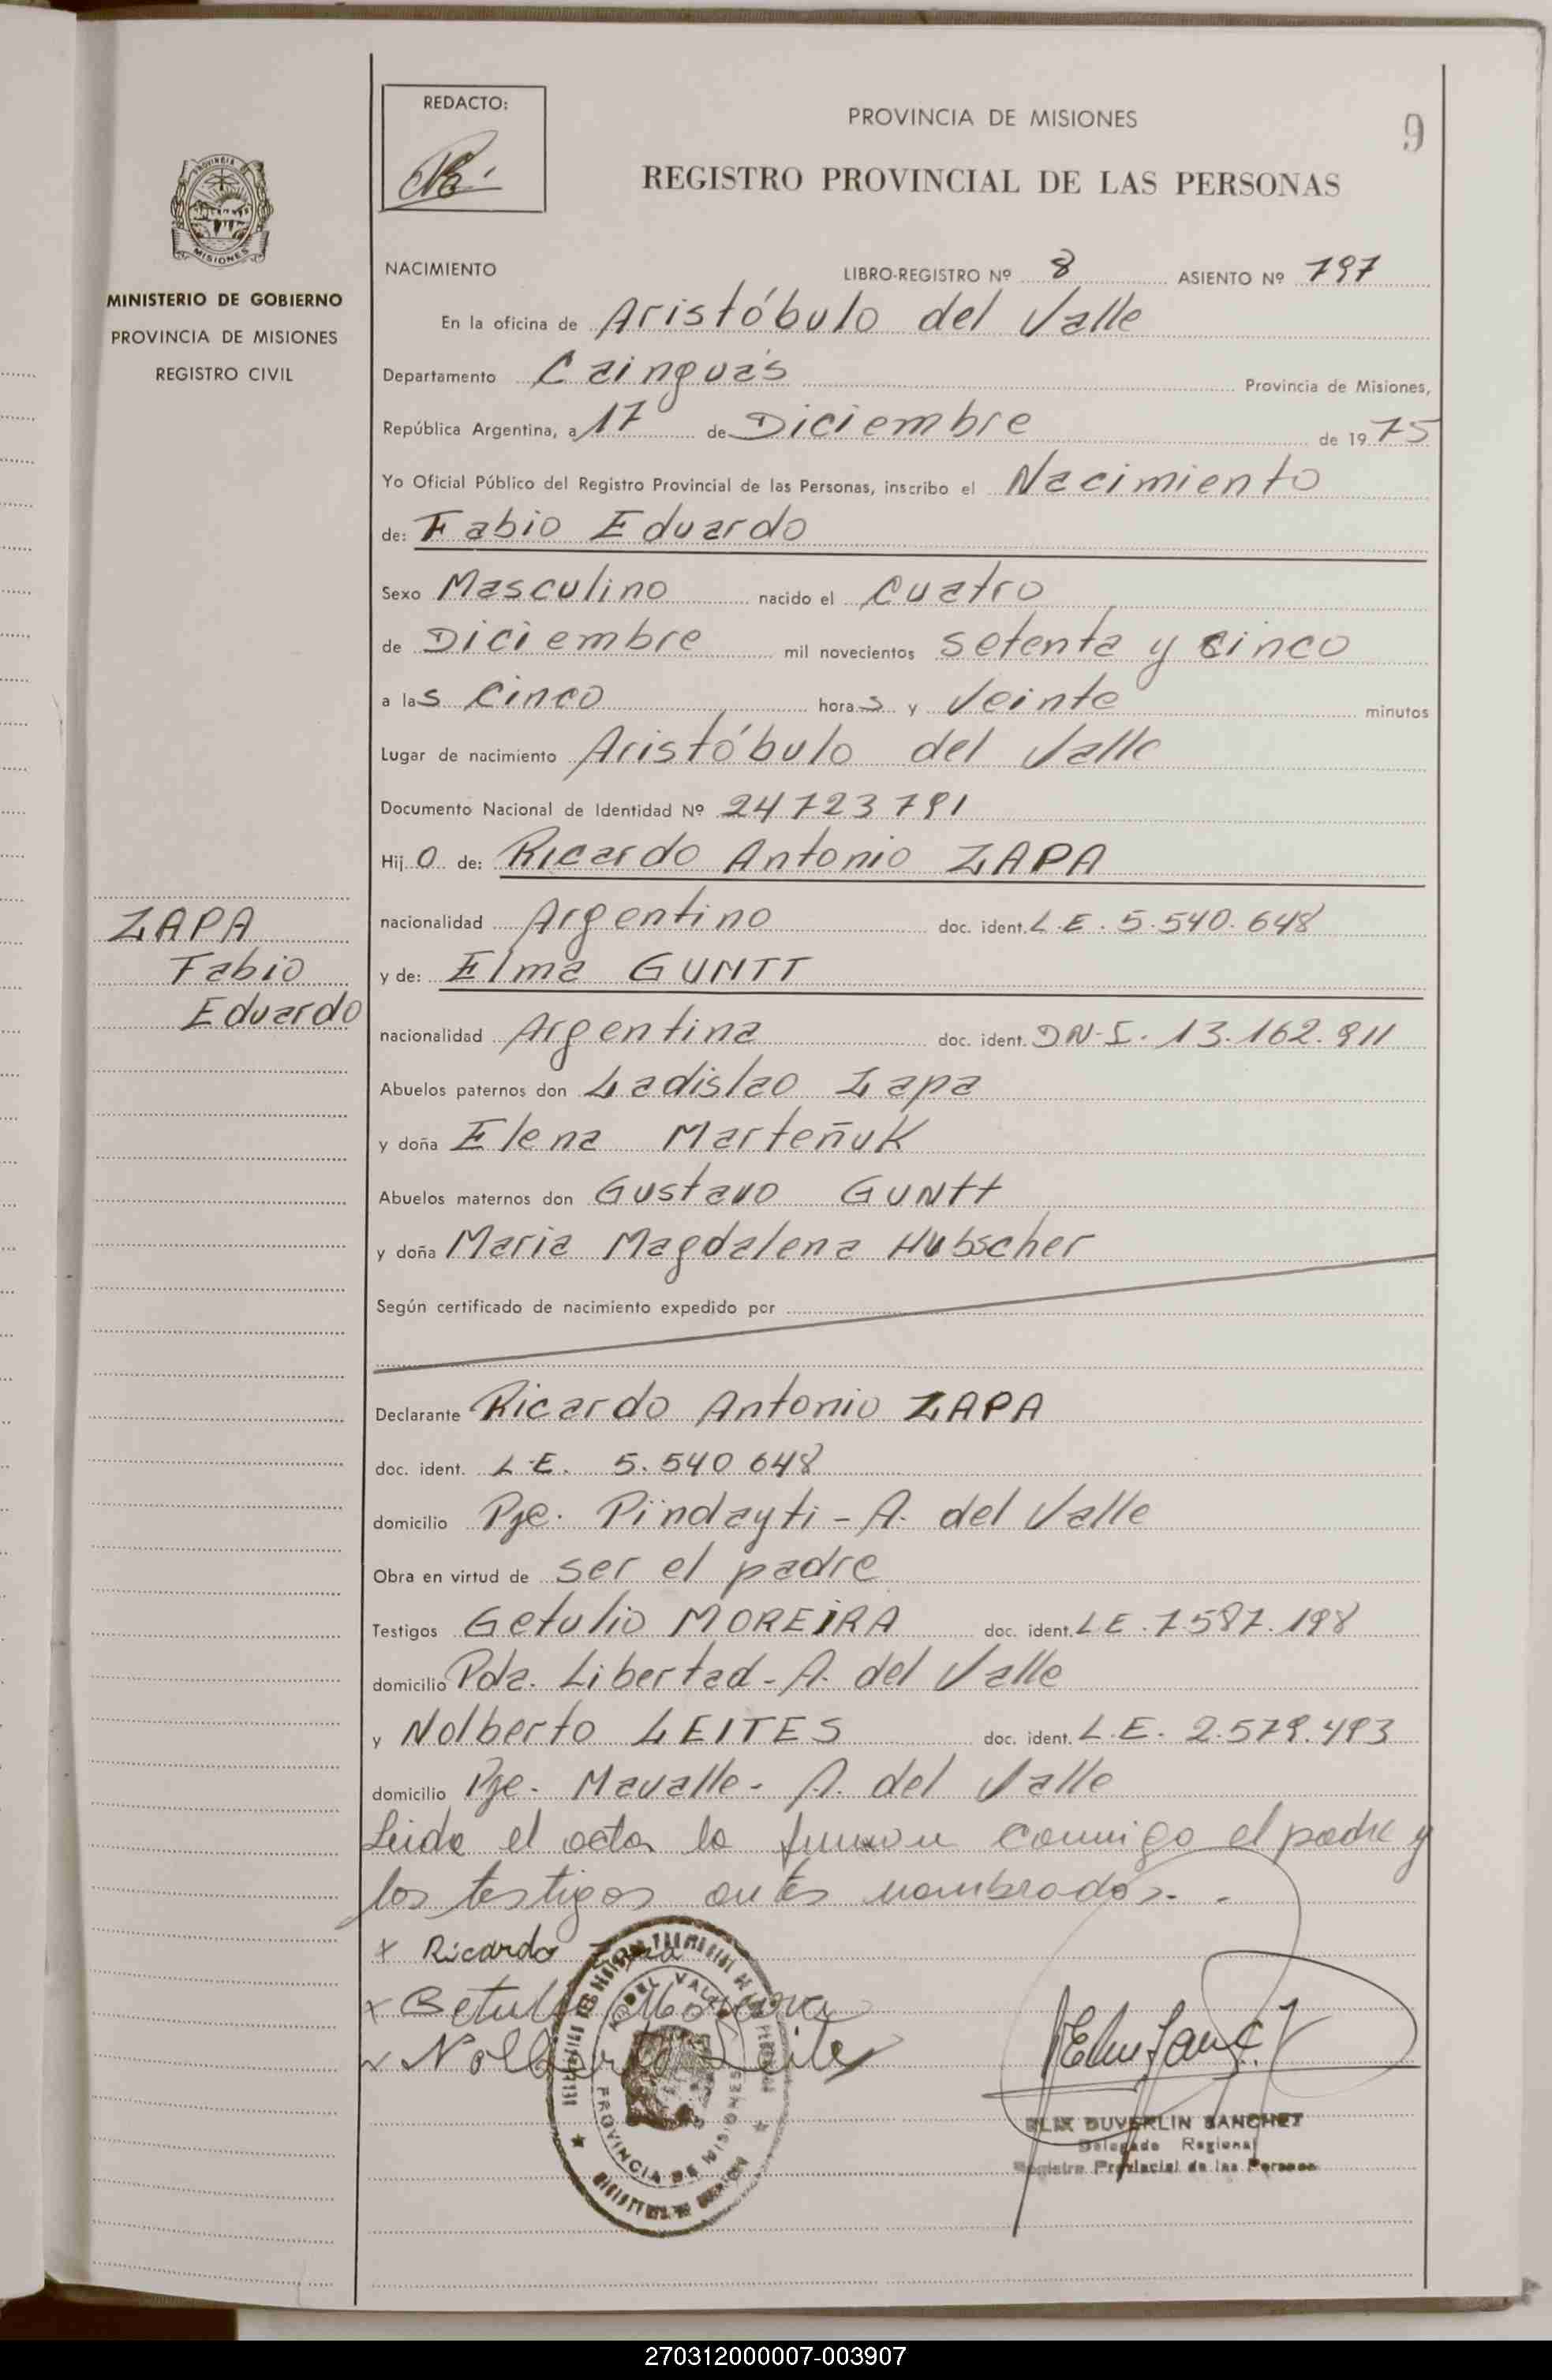 REDACTO:
PROVINCIA DE MISIONES
9
REGISTRO PROVINCIAL DE LAS PERSONAS
PROVINCIA
MISIONES
MINISTERIO DE GOBIERNO
PROVINCIA DE MISIONES
REGISTRO CIVIL
NACIMIENTO LIBRO-REGISTRO Nº 8 ASIENTO Nº 797
En la oficina de Aristóbulo del Valle
Departamento Cainguás Provincia de Misiones,
República Argentina, a 17 de Diciembre de 1975
Yo Oficial Público del Registro Provincial de las Personas, inscribo el Nacimiento
de: Fabio Eduardo
Sexo Masculino nacido el cuatro
de Diciembre mil novecientos setenta y cinco
a las cinco horas y veinte minutos
Lugar de nacimiento Aristóbulo del Valle
Documento Nacional de Identidad Nº 24723791
Hijo de: Ricardo Antonio ZAPA
nacionalidad Argentino doc. ident. L.E. 5.540.648
y de: Elma GUNTT
nacionalidad Argentina doc. ident. DN.I. 13.162.911
Abuelos paternos don Ladislao Zapa
y doña Elena Marteñuk
Abuelos maternos don Gustavo GUNtt
y doña Maria Magdalena Hubscher
Según certificado de nacimiento expedido por
Declarante Ricardo Antonio ZAPA
doc. ident. L.E. 5.540 648
domicilio Pje. Pindayti - A. del Valle
Obra en virtud de ser el padre
Testigos Getulio MOREIRA doc. ident. LE. 7.587.198
domicilio Pda. Libertad - A. del Valle
y Nolberto LEITES doc. ident. L.E. 2.579.493
domicilio Pje. Mavalle - A. del Valle
Leida el acta la firman conmigo el padre y
los testigos antes nombrados.-
x Ricardo Zapa
x Betulio Moreira
x Nolberto Leites
ZAPA
Fabio
Eduardo
A. DEL VALLE
PROVINCIA DE MISIONES
DUVERLIN SANCHEZ
Delegado Regional
Registro Provincial de las Personas
270312000007-003907